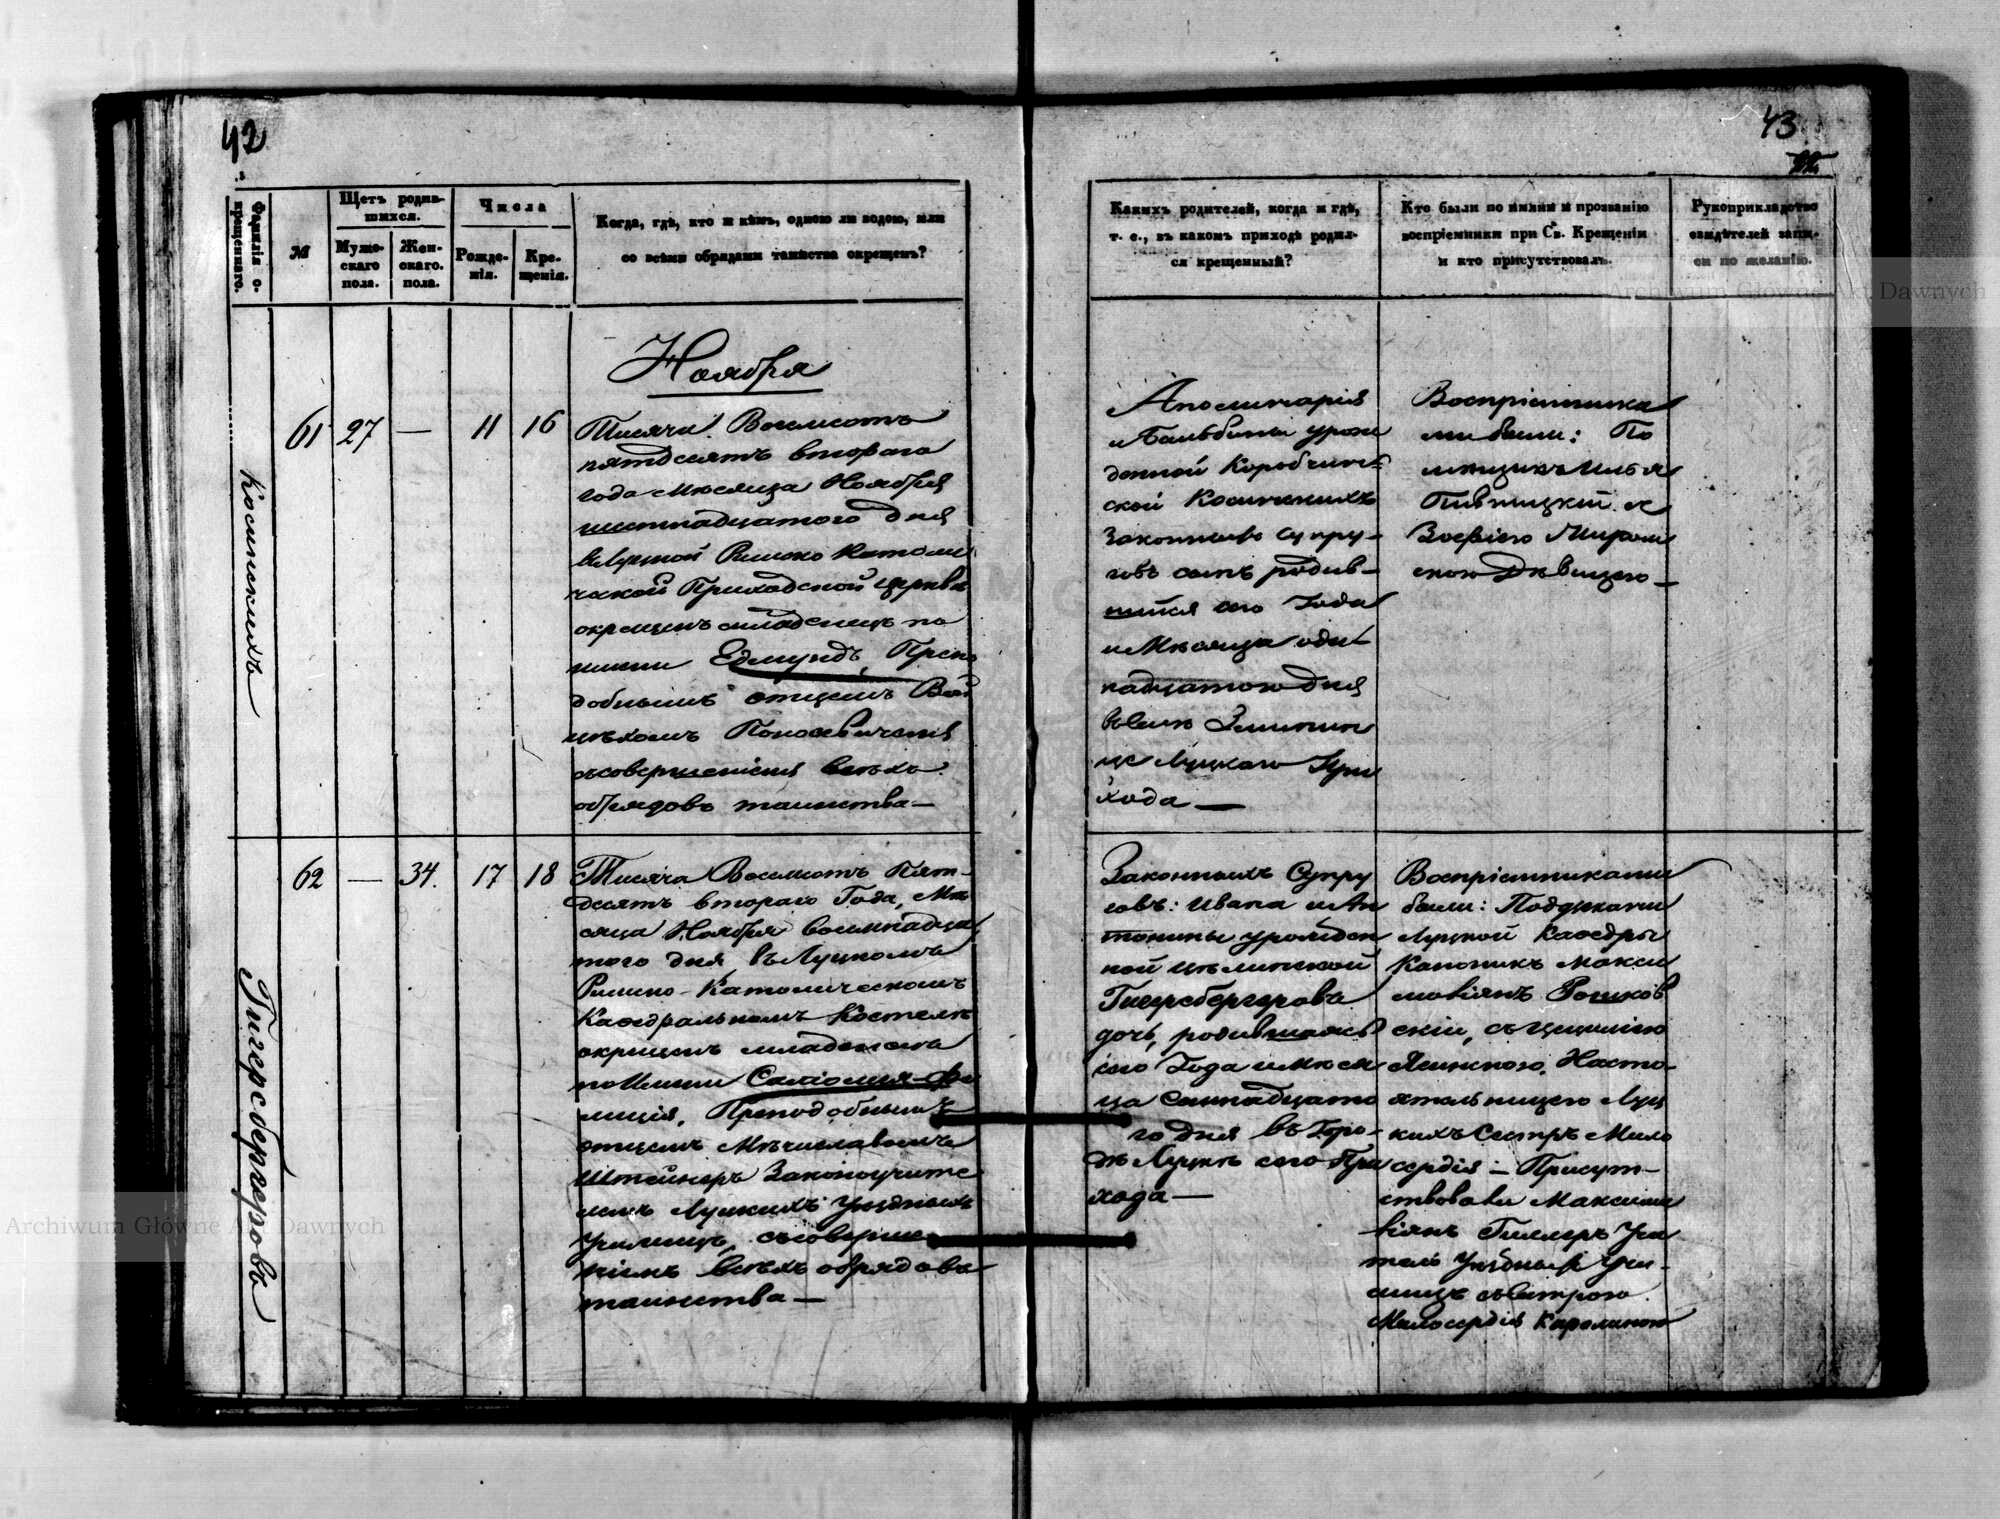 42
Фамилія о-
крещеннаго.
№
Щетъ родив-
шихся.
Муже-
скаго
пола.
Жен-
скаго.
пола.
Числа
Рожде-
нія.
Кре-
щенія.
Когда, гдѣ, кто и кѣмъ, одною ли водою, или
со всѣми обрядами таинства окрещенъ?
Ноября
Косинскихъ
61
27
—
11
16
Тысяча Восемсотъ
пятдесятъ втораго
года Мѣсяца Ноября
шестнадцатого дня
Римско Катол
ческой Приходской церкви
окрещенъ младенецъ по
имени Едмундъ, Препо
добнымъ отцемъ Вой
цѣхомъ
съ совершеніемъ всѣхъ
обрядовъ таинства —
Гигерсбергеровъ
62
—
34.
17
18
Тысяча Восемсотъ Пят-
десятъ втораго Года, Мѣ
сяца Ноября восемнадца
того дня въ Луцкомъ
Римско-Католическомъ
Кафедральномъ Костелѣ
окрещенъ младенецъ
по Имени Саліомея-Фе
лиція, Преподобнымъ
отцемъ Мѣчиславомъ
Штейнеръ Законоучите
лемъ Луцкихъ Уѣздныхъ
Училищъ, съ соверше
ніемъ всѣхъ обрядовъ
таинства —
43
22.
Какихъ родителей, когда и гдѣ,
т. е., въ какомъ приходѣ родил-
ся крещенный?
Кто были по имени и прозванію
воспріемники при Св. Крещеніи
и кто присутствовалъ.
Рукоприкладство
свидѣтелей запи-
си по желанію.
Аполинарія
и Бальбины урож
денной
ской Косинскихъ
Законныхъ супру-
говъ сынъ родив-
шійся сего Года
и Мѣсяца оди-
надцатого дня
въ селѣ
цѣ Луцкаго При
хода —
Воспріемника
ми были: По
мѣщикъ Илья
Пивницкій и
Зофіею
скою Дѣвицею —
Законныхъ Супру
говъ: Ивана и Ан
тонины урожден
ной
Гигерсбергерова
дочь, родившаяся
сего Года и Мѣся
ца Семнадцато
го дня въ Горо-
дѣ Луцкѣ сего При
хода —
Воспріемниками
были:
Луцкой Кафедры
Каноникъ Макси
миліянъ
скій, съ Цециліею
Насто-
ятельницею Луц
кихъ Сестръ Мило
сердія — Присут-
ствовали Максими
ліянъ Гиллеръ Учи
тель Уѣздныхъ Учи-
лищъ съ Сестрою
Милосердія Каролиною
Archiwum Główne Akt Dawnych
Archiwum Główne Akt Dawnych